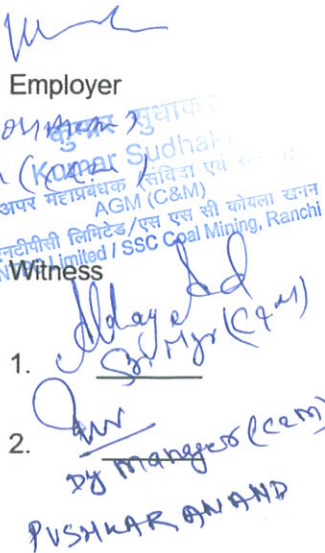 Employer
कुमार सुधाकर
(Kumar Sudhakar)
अपर महाप्रबंधक (संविदा एवं
AGM (C&M)
एनटीपीसी लिमिटेड/एस एस सी कोयला खनन
NTPC Limited / SSC Coal Mining, Ranchi
Witness
1.
Sr. Mgr (C&M)
2.
Dy Manager (C&M)
PUSHKAR ANAND